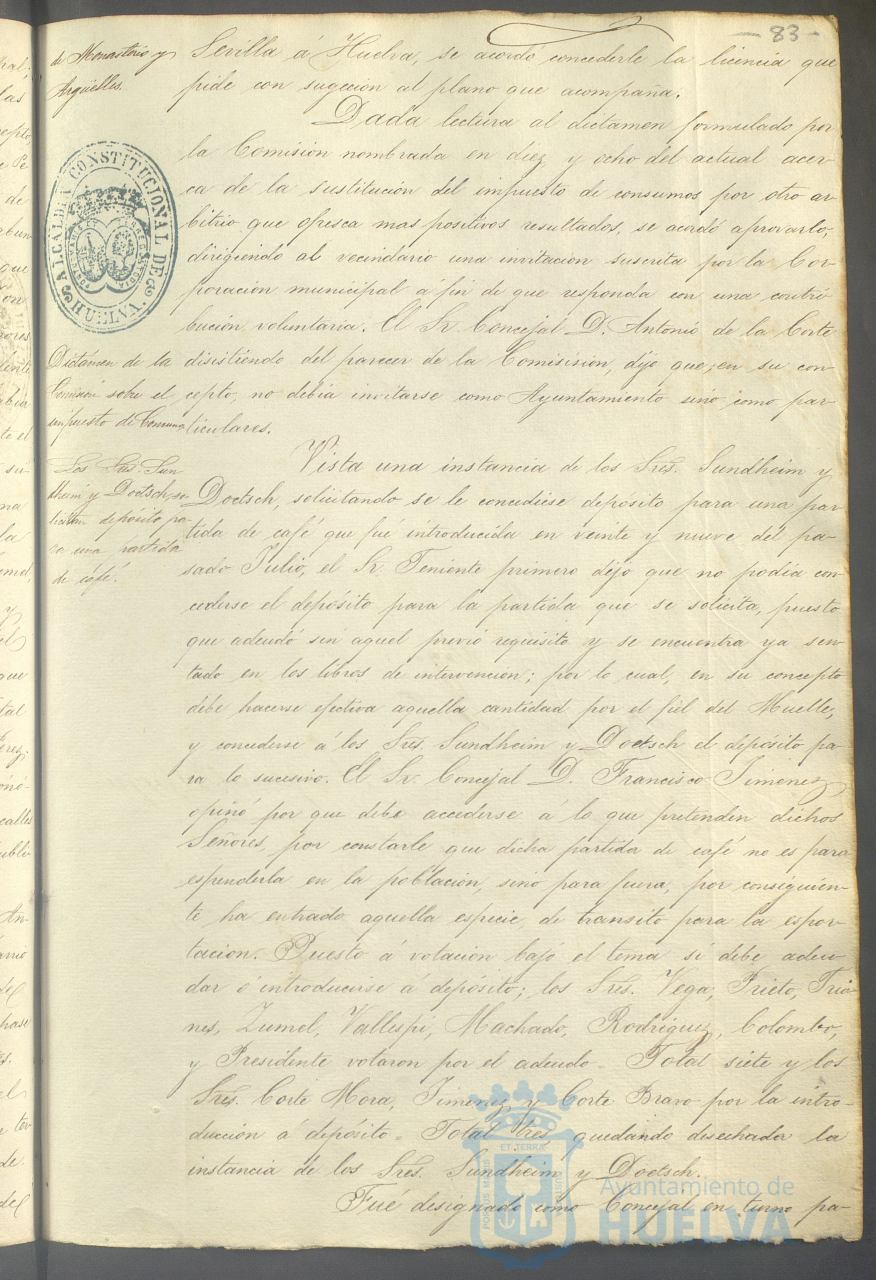 83
de Monasterio y
Argüelles.
Sevilla á Huelva, se acordó concederle la licencia que
pide con sugeccion al plano que acompaña.
Dada lectura al dictamen formulado por
la Comisión nombrada en diez y ocho del actual acer-
ca de la sustitución del impuesto de consumos por otro ar-
bitrio que ofresca mas positivos resultados, se acordó aprovarlo,
dirigiendo al vecindario una invitacion suscrita por la Cor-
poración municipal a fin de que responda con una contri-
bución voluntaria. El Sr. Concejal D. Antonio de la Corte
disistiendo del parecer de la Comisision, dijo que, en su con-
cepto, no debia invitarse como Ayuntamiento sino como par-
ticulares.
ALCALDIA CONSTITUCIONAL DE HUELVA
Dictámen de la
Comisión sobre el
impuesto de Consumos
Los Sres. Sun-
dheim y Doetsch, so-
licitan depósito pa-
ra una partida
de café.
Vista una instancia de los Sres. Sundheim y
Doetsch, solicitando se le concediese depósito para una par-
tida de café que fué introducida en veinte y nueve del pa-
sado Julio, el Sr. Teniente primero dijo que no podia con-
cederse el depósito para la partida que se solicita, puesto
que adeudó sin aquel previo requisito y se encuentra ya sen-
tado en los libros de intervencion; por lo cual, en su concepto
debe hacerse efectiva aquella cantidad por el fiel del Muelle,
y concederse á los Sres. Sundheim y Doetsch el depósito pa-
ra lo sucesivo. El Sr. Concejal D. Francisco Jimenez
opinó por que debe accederse á lo que pretenden dichos
Señores, por constarle que dicha partida de café no es para
espenderla en la población, sino para fuera, por consiguien-
te ha entrado aquella especie de tránsito para la espor-
tacion. Puesto á votación bajo el tema si debe adeu-
dar ó introducirse á depósito; los Sres. Vega, Prieto, Tria-
nes, Zumel, Vallespi, Machado, Rodriguez, Colombo,
y Presidente votaron por el adeudo. Total siete y los
Sres. Corte Mora, Jimenez y Corte Bravo por la intro-
ducción á depósito. Total tres, quedando desechada la
instancia de los Sres. Sundheim y Doetsch.
Fué designado como Concejal en turno pa-
PORTUS MARIS
ET TERRA
CUSTODIA
Ayuntamiento de
HUELVA